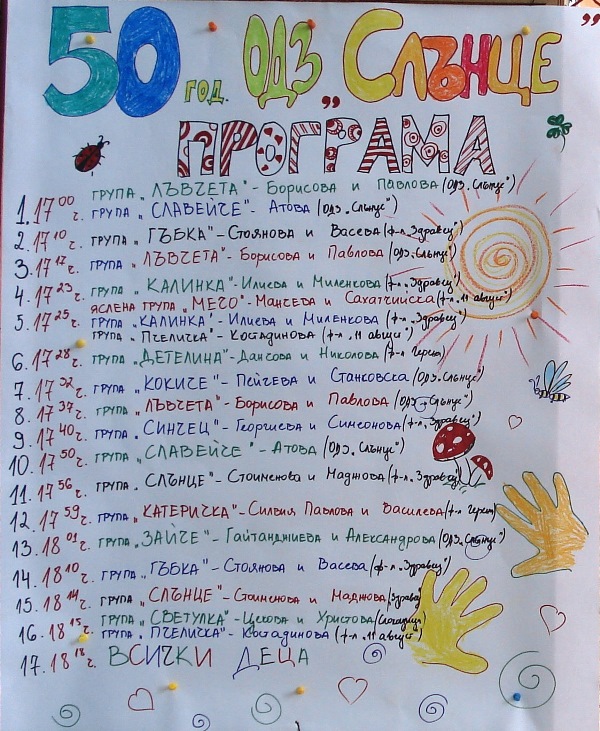 50 год. ОДЗ „Слънце”
ПРОГРАМА
1. 17⁰⁰ ч. ГРУПА „ЛЪВЧЕТА" - Борисова и Павлова (ОДЗ „Слънце")
ГРУПА „СЛАВЕЙЧЕ" - Атова (ОДЗ „Слънце")
2. 17¹⁰ ч. ГРУПА „ГЪБКА" - Стоянова и Васева (ф-л „Здравец")
3. 17¹⁷ ч. ГРУПА „ЛЪВЧЕТА" - Борисова и Павлова (ОДЗ „Слънце")
4. 17²³ ч. ГРУПА „КАЛИНКА" - Илиева и Миленкова (ф-л „Здравец")
ЯСЛЕНА ГРУПА „МЕЧО" - Манчева и Сахатчийска (ф-л „11 август")
5. 17²⁵ ч. ГРУПА „КАЛИНКА" - Илиева и Миленкова (ф-л „Здравец")
ГРУПА „Пчеличка" - Костадинова (ф-л „11 август")
6. 17²⁸ ч. ГРУПА „ДЕТЕЛИНА" - Дансова и Николова (ф-л Герена)
7. 17³² ч. ГРУПА „КОКИЧЕ" - Пейчева и Станковска (ОДЗ „Слънце")
8. 17³⁷ ч. ГРУПА „ЛЪВЧЕТА" - Борисова и Павлова (ОДЗ „Слънце")
9. 17⁴⁰ ч. ГРУПА „СИНЧЕЦ" - Георгиева и Симеонова (ф-л „Здравец")
10. 17⁵⁰ ч. ГРУПА „СЛАВЕЙЧЕ" - Атова (ОДЗ „Слънце")
11. 17⁵⁶ ч. ГРУПА „СЛЪНЦЕ" - Стоименова и Маджова (ф-л „Здравец")
12. 17⁵⁹ ч. ГРУПА „КАТЕРИЧКА" - Силвия Павлова и Василева (ф-л Герена)
13. 18⁰¹ ч. ГРУПА „ЗАЙЧЕ" - Гайтанджиева и Александрова (ОДЗ „Слънце")
14. 18¹⁰ ч. ГРУПА „ГЪБКА" - Стоянова и Васева (ф-л „Здравец")
15. 18¹⁴ ч. ГРУПА „СЛЪНЦЕ" - Стоименова и Маджова (Здравец)
16. 18¹⁵ ч. ГРУПА „СВЕТУЛКА" - Цекова и Христова
ГРУПА „ПЧЕЛИЧКА" - Костадинова (ф-л „11 август")
17. 18¹⁸ ч. ВСИЧКИ ДЕЦА